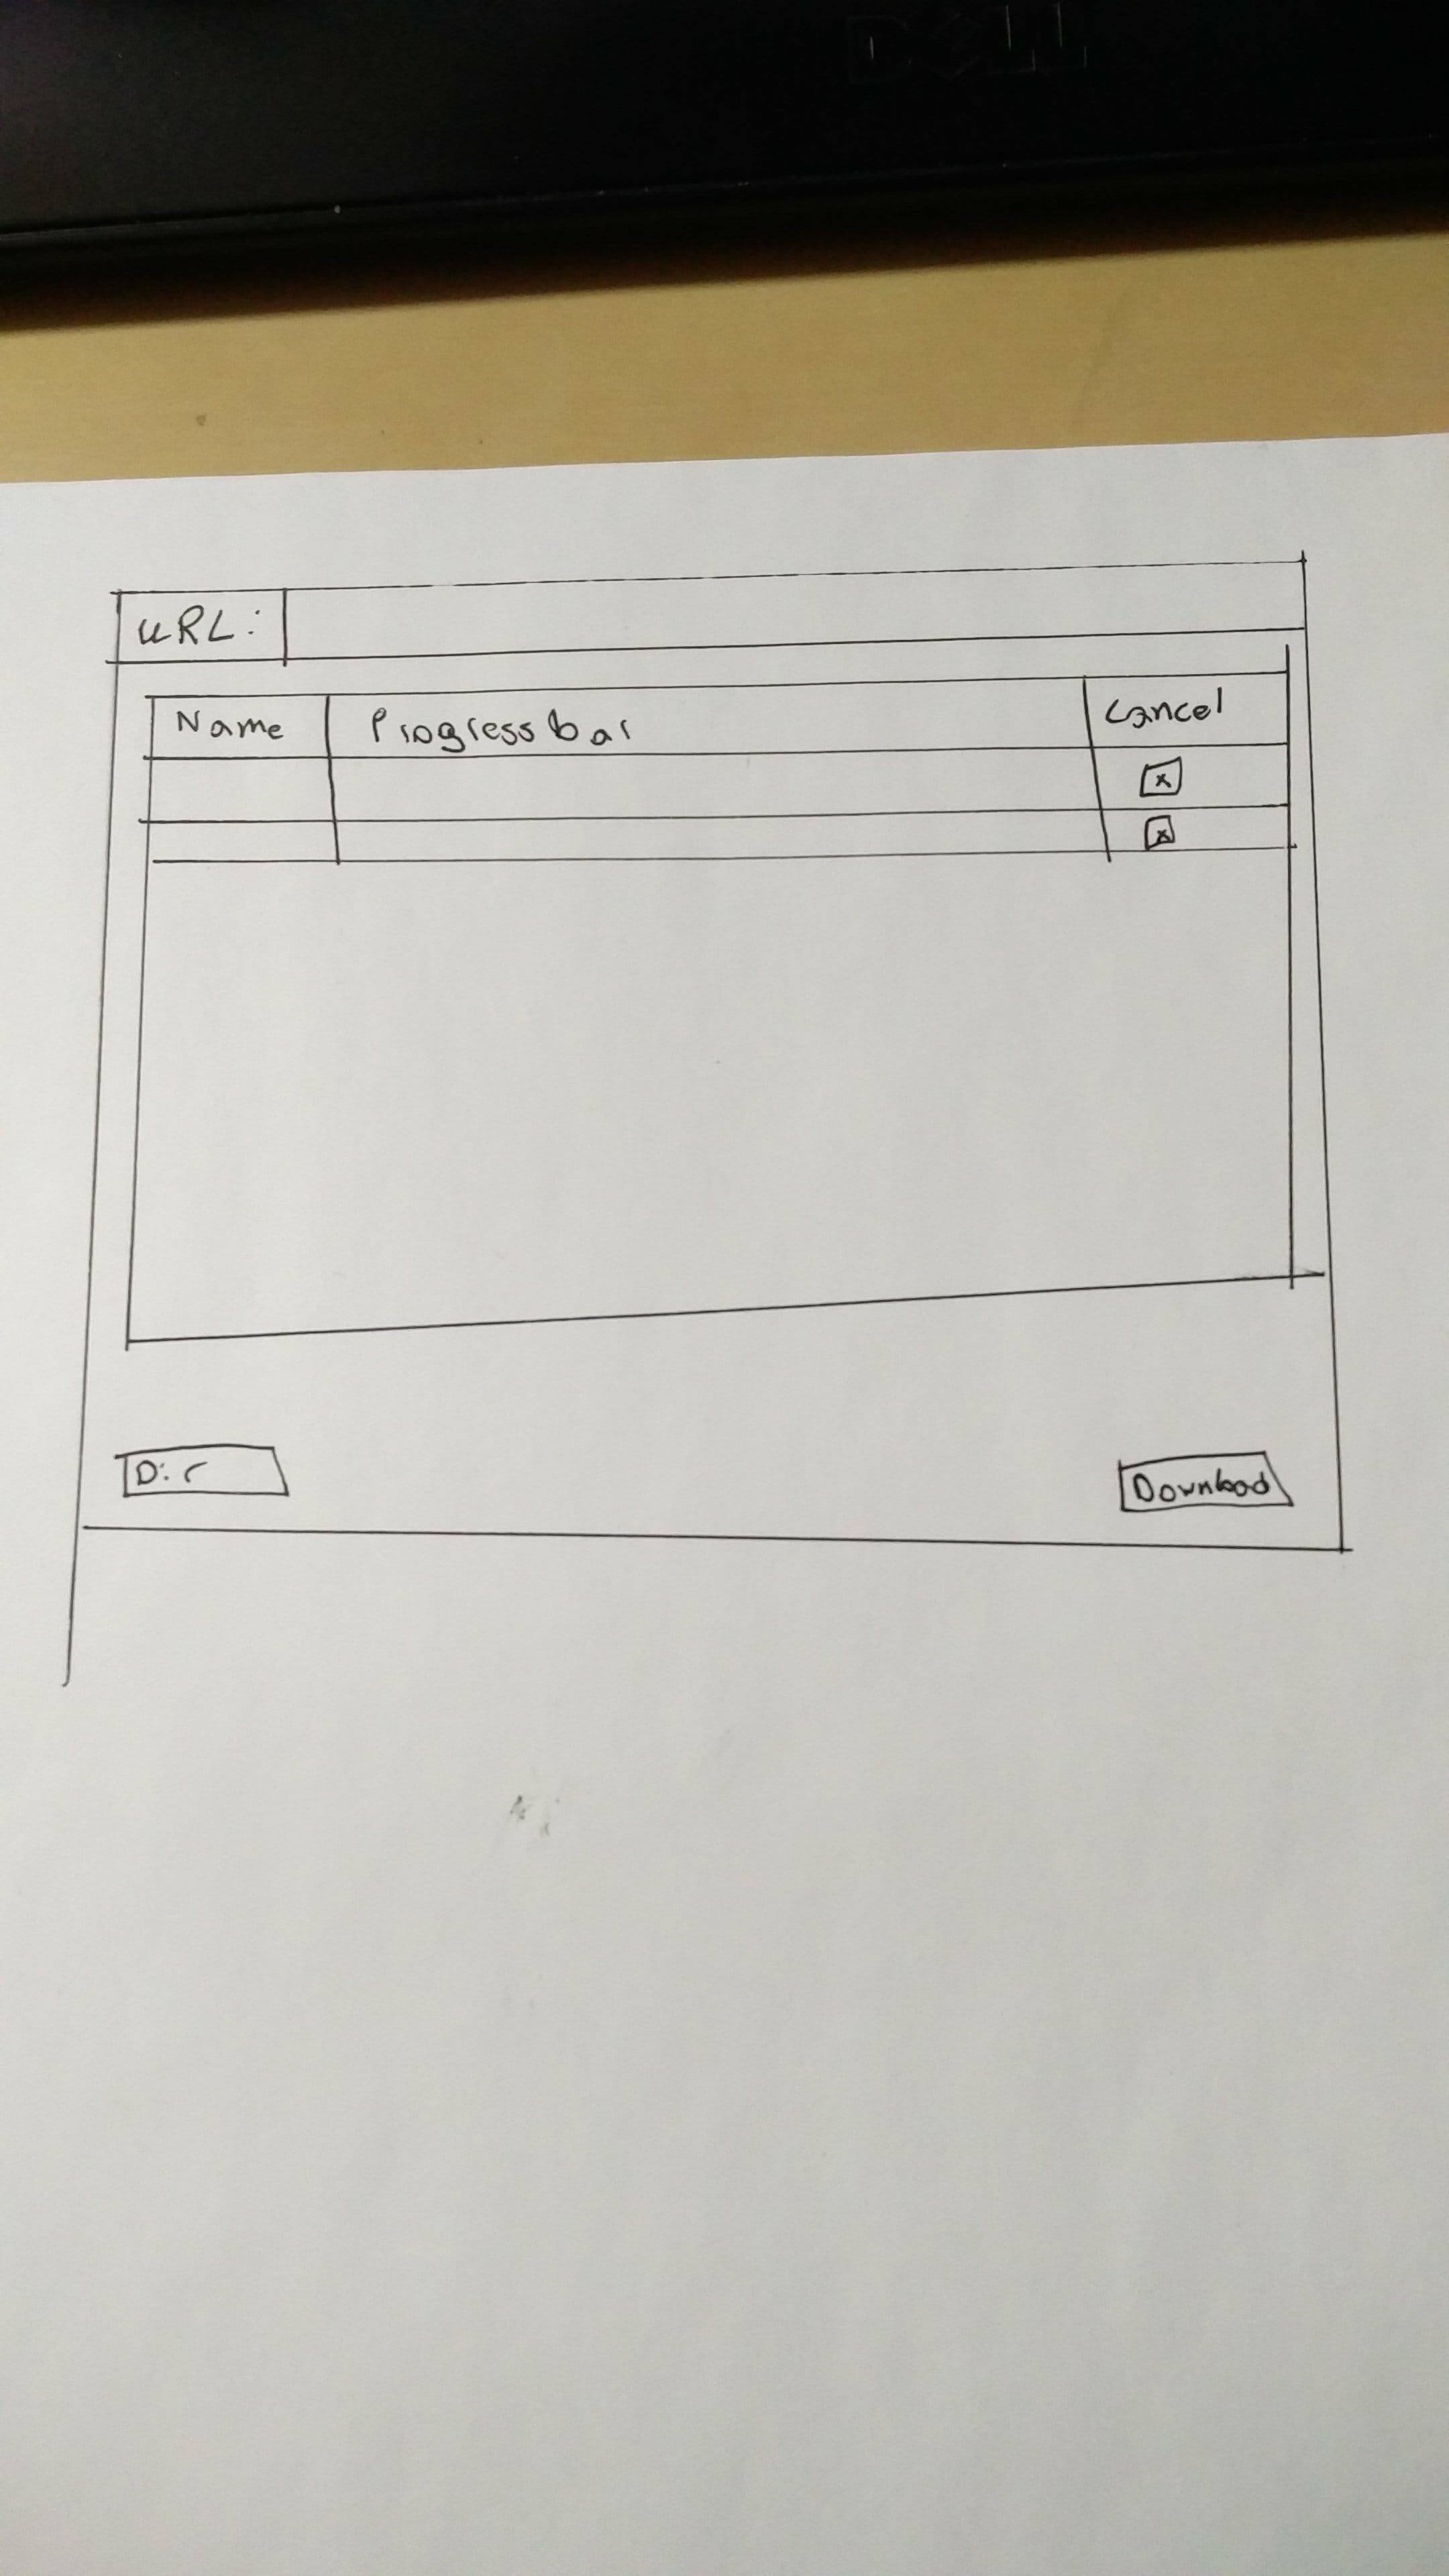 DELL
URL:
Name Progressbar Cancel
x
x
Dir Download